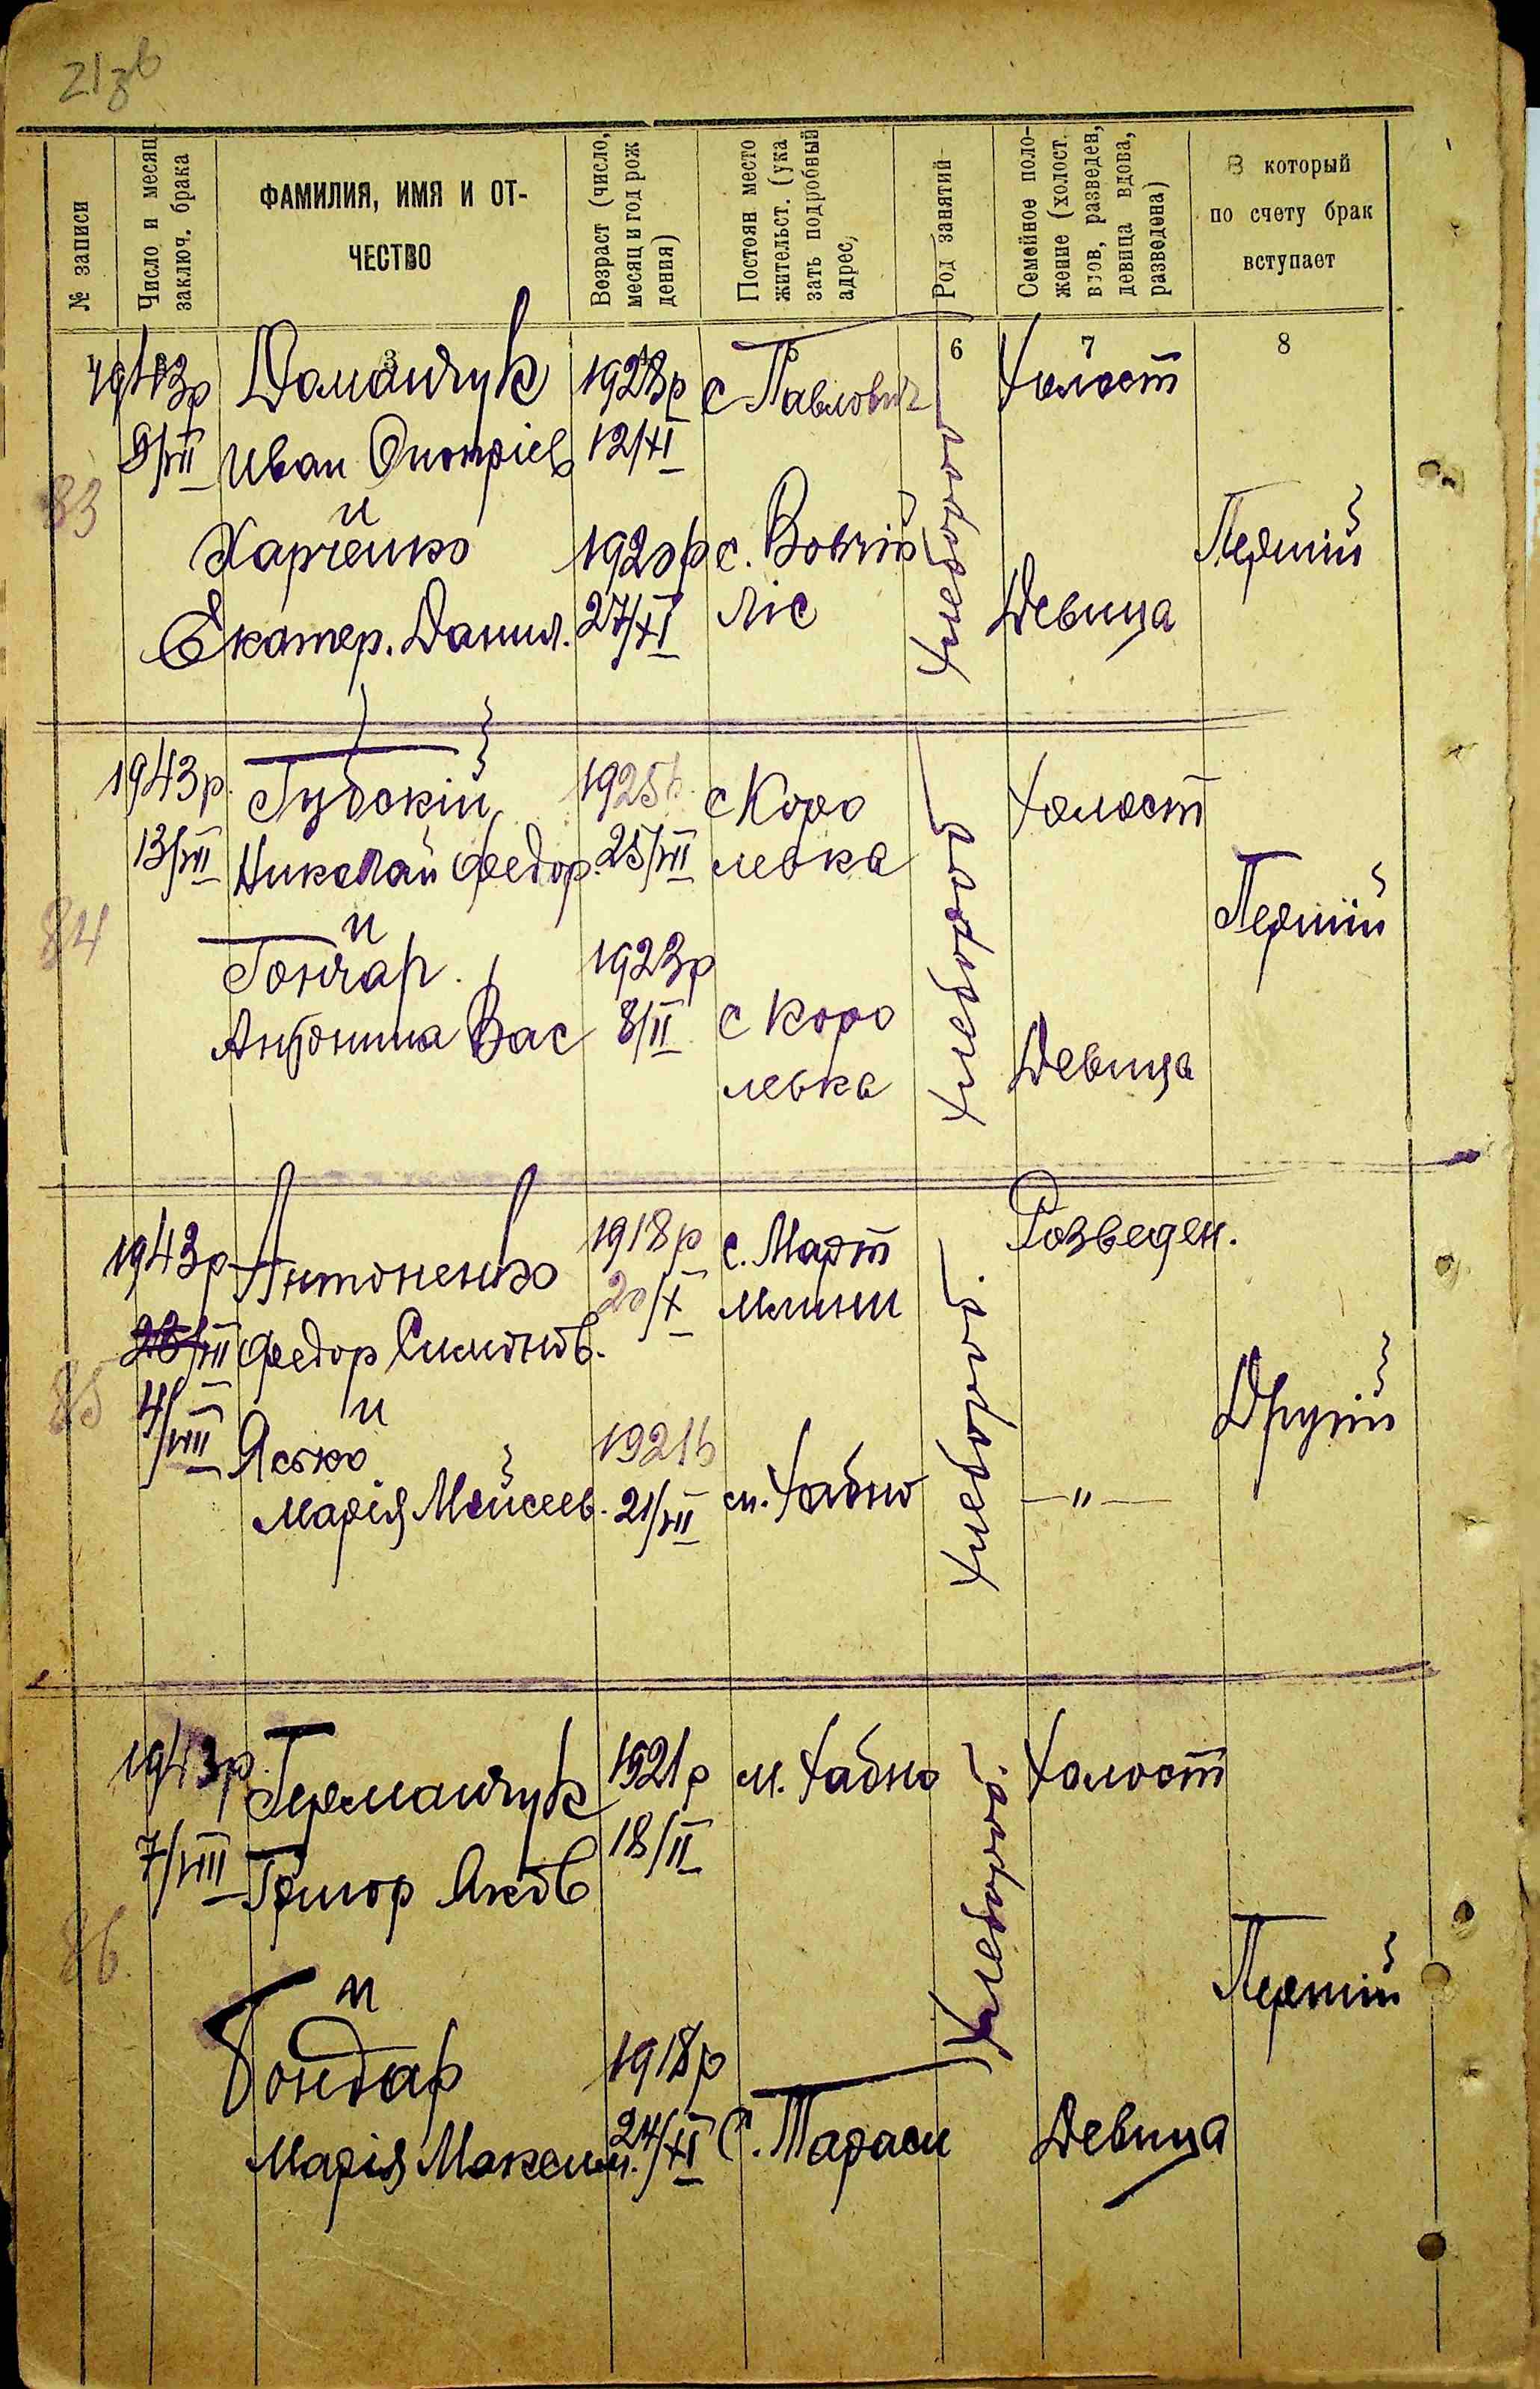 21зв
№ записи
Число и месяц
заключ. брака
ФАМИЛИЯ, ИМЯ И ОТ-
ЧЕСТВО
Возраст (число,
месяц и год рож
дения)
Постоян место
жительст. (ука
зать подробный
адрес,
Род занятий
Семейное поло-
жение (холост.
вдов, разведен,
девица вдова,
разведена)
В который
по счету брак
вступает
3
6
7
8
83
1943р
9/VII
Доманчук
Иван Онопріев
и
Харченко
Екатер. Данил.
1923р
12/XI
1920р
27/XI
с Павлович
с. Вовчій
ліс
Хлебороб
Холост
Девица
Перший
84
1943р.
13/VII
Губскій
Николай Федор.
и
Гончар.
Антонина Вас
1925р.
25/VII
1923р
8/II
с Коро
левка
с Коро
левка
Хлебороб
Холост
Девица
Перший
85
1943р
4/VIII
Антоненко
Федор Симонов.
и
Ясько
Марія Мойсеев.
1918р
20/X
1921р
21/VII
с. Март
м. Хабно
Хлебороб.
Розведен.
— " —
Другий
86.
1943р.
7/VIII
Германчук
Григор Яков
и
Бондар
Марія Максим.
1921р
18/II
1918р
24/XI
м. Хабно
С. Тараси
Хлебороб.
Холост
Девица
Перший